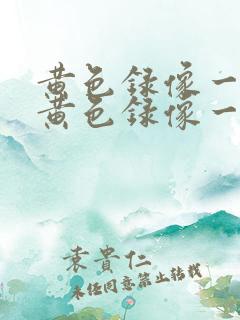 黄色録像一
黄色録像一
袁貴仁
未经同意禁止转载